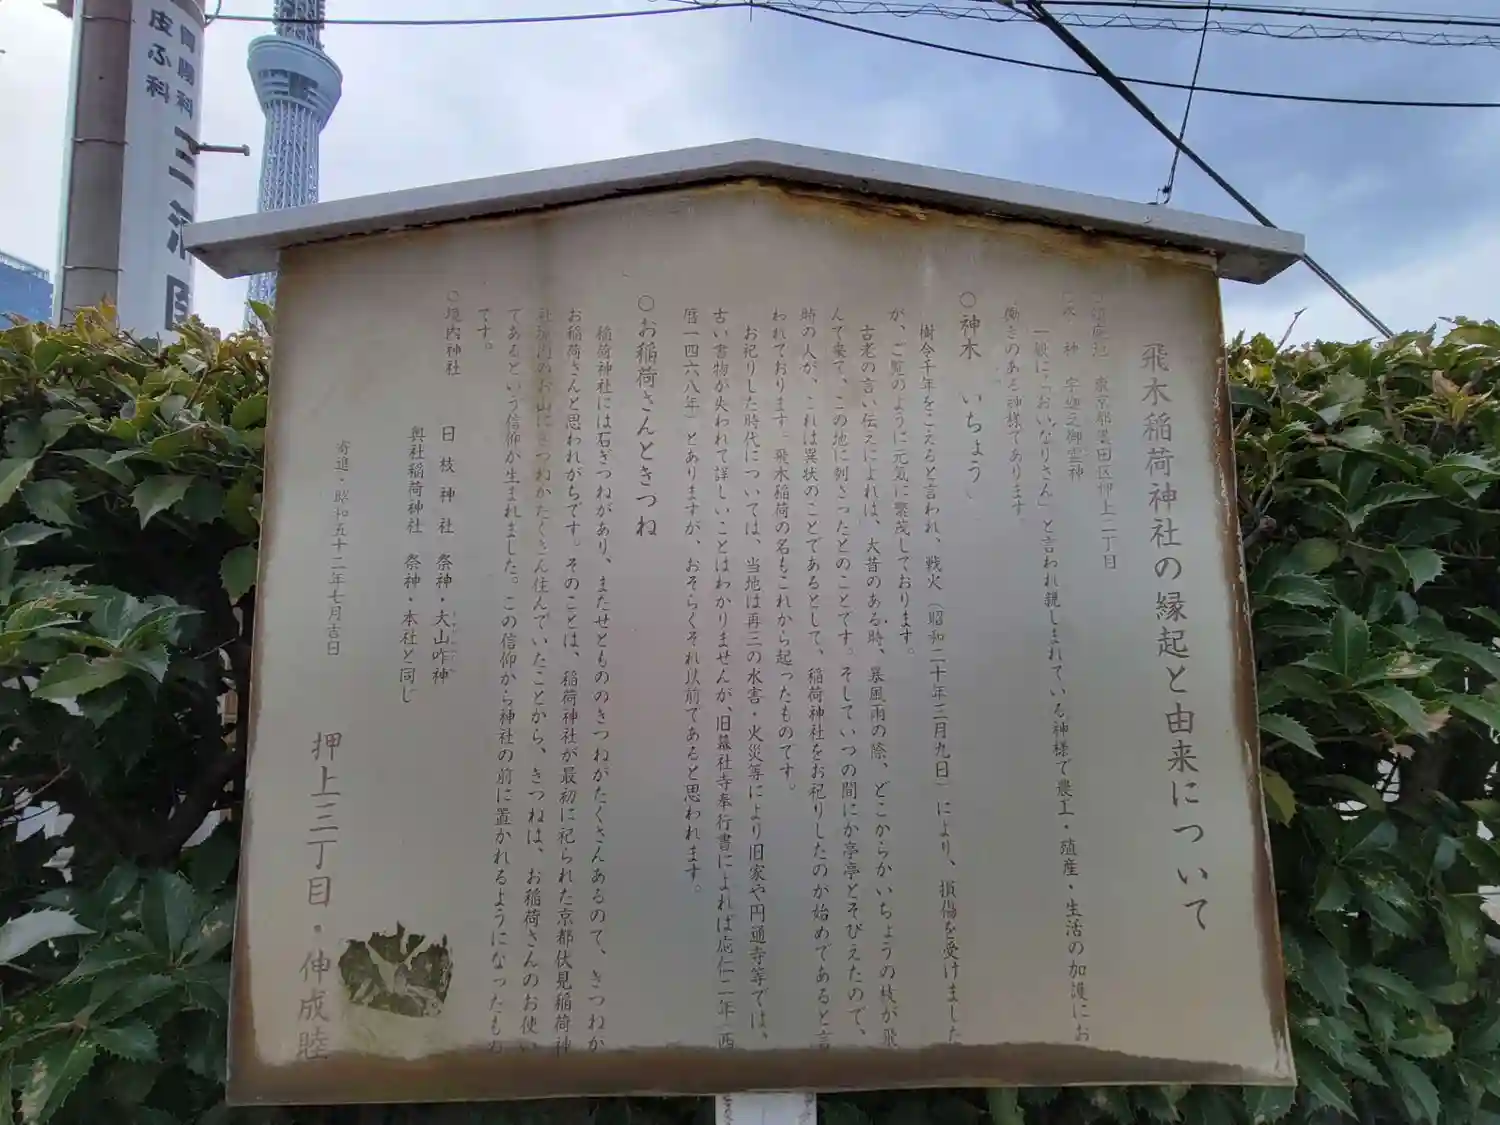 飛木稲荷神社の縁起と由来について
東京都墨田区押上二丁目
神 宇迦之御霊神
一般に「おいなりさん」と言われ親しまれている神様で農工・殖産・生活の加護にお
働きのある神様であります。
○神木 いちょう
樹令千年をこえると言われ、戦火(昭和二十年三月九日)により、損傷を受けました
が、ご覧のように元気に繁茂しております。
古老の言い伝えによれば、大昔のある時、暴風雨の際、どこからかいちょうの枝が飛
んで来て、この地に刺さったとのことです。そしていつの間にか亭亭とそびえたので、
時の人が、これは異状のことであるとして、稲荷神社をお祀りしたのが始めであると言
われております。飛木稲荷の名もこれから起ったものです。
お祀りした時代については、当地は再三の水害・火災等により旧家や円通寺等では、
古い書物が失われて詳しいことはわかりませんが、旧幕社寺奉行書によれば応仁二年(西
暦一四六八年)とありますが、おそらくそれ以前であると思われます。
○お稲荷さんときつね
稲荷神社には石ぎつねがあり、またせともののきつねがたくさんあるので、きつねが
お稲荷さんと思われがちです。そのことは、稲荷神社が最初に祀られた京都伏見稲荷神
社境内のお山にきつねがたくさん住んでいたことから、きつねは、お稲荷さんのお使い
であるという信仰が生まれました。この信仰から神社の前に置かれるようになったもの
です。
○境内神社
日枝神社 祭神・大山咋神
奥社稲荷神社 祭神・本社と同じ
寄進・昭和五十二年七月吉日
押上三丁目・伸成睦
胃腸科
皮ふ科